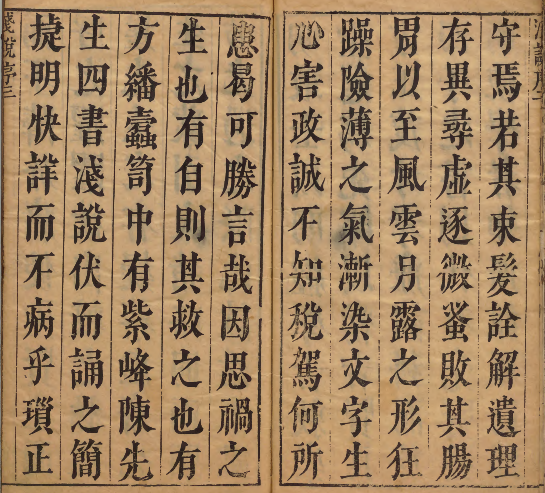 守焉若其束髮詮解遺理
存異尋虛逐微蚤敗其腸
胃以至風雲月露之形狂
躁險薄之氣漸染文字生
心害政誠不知稅駕何所
患曷可勝言哉因思禍之
生也有自則其救之也有
方繙蠹笥中有紫峰陳先
生四書淺說伏而誦之簡
捷明快詳而不病乎瑣正
淺說序三